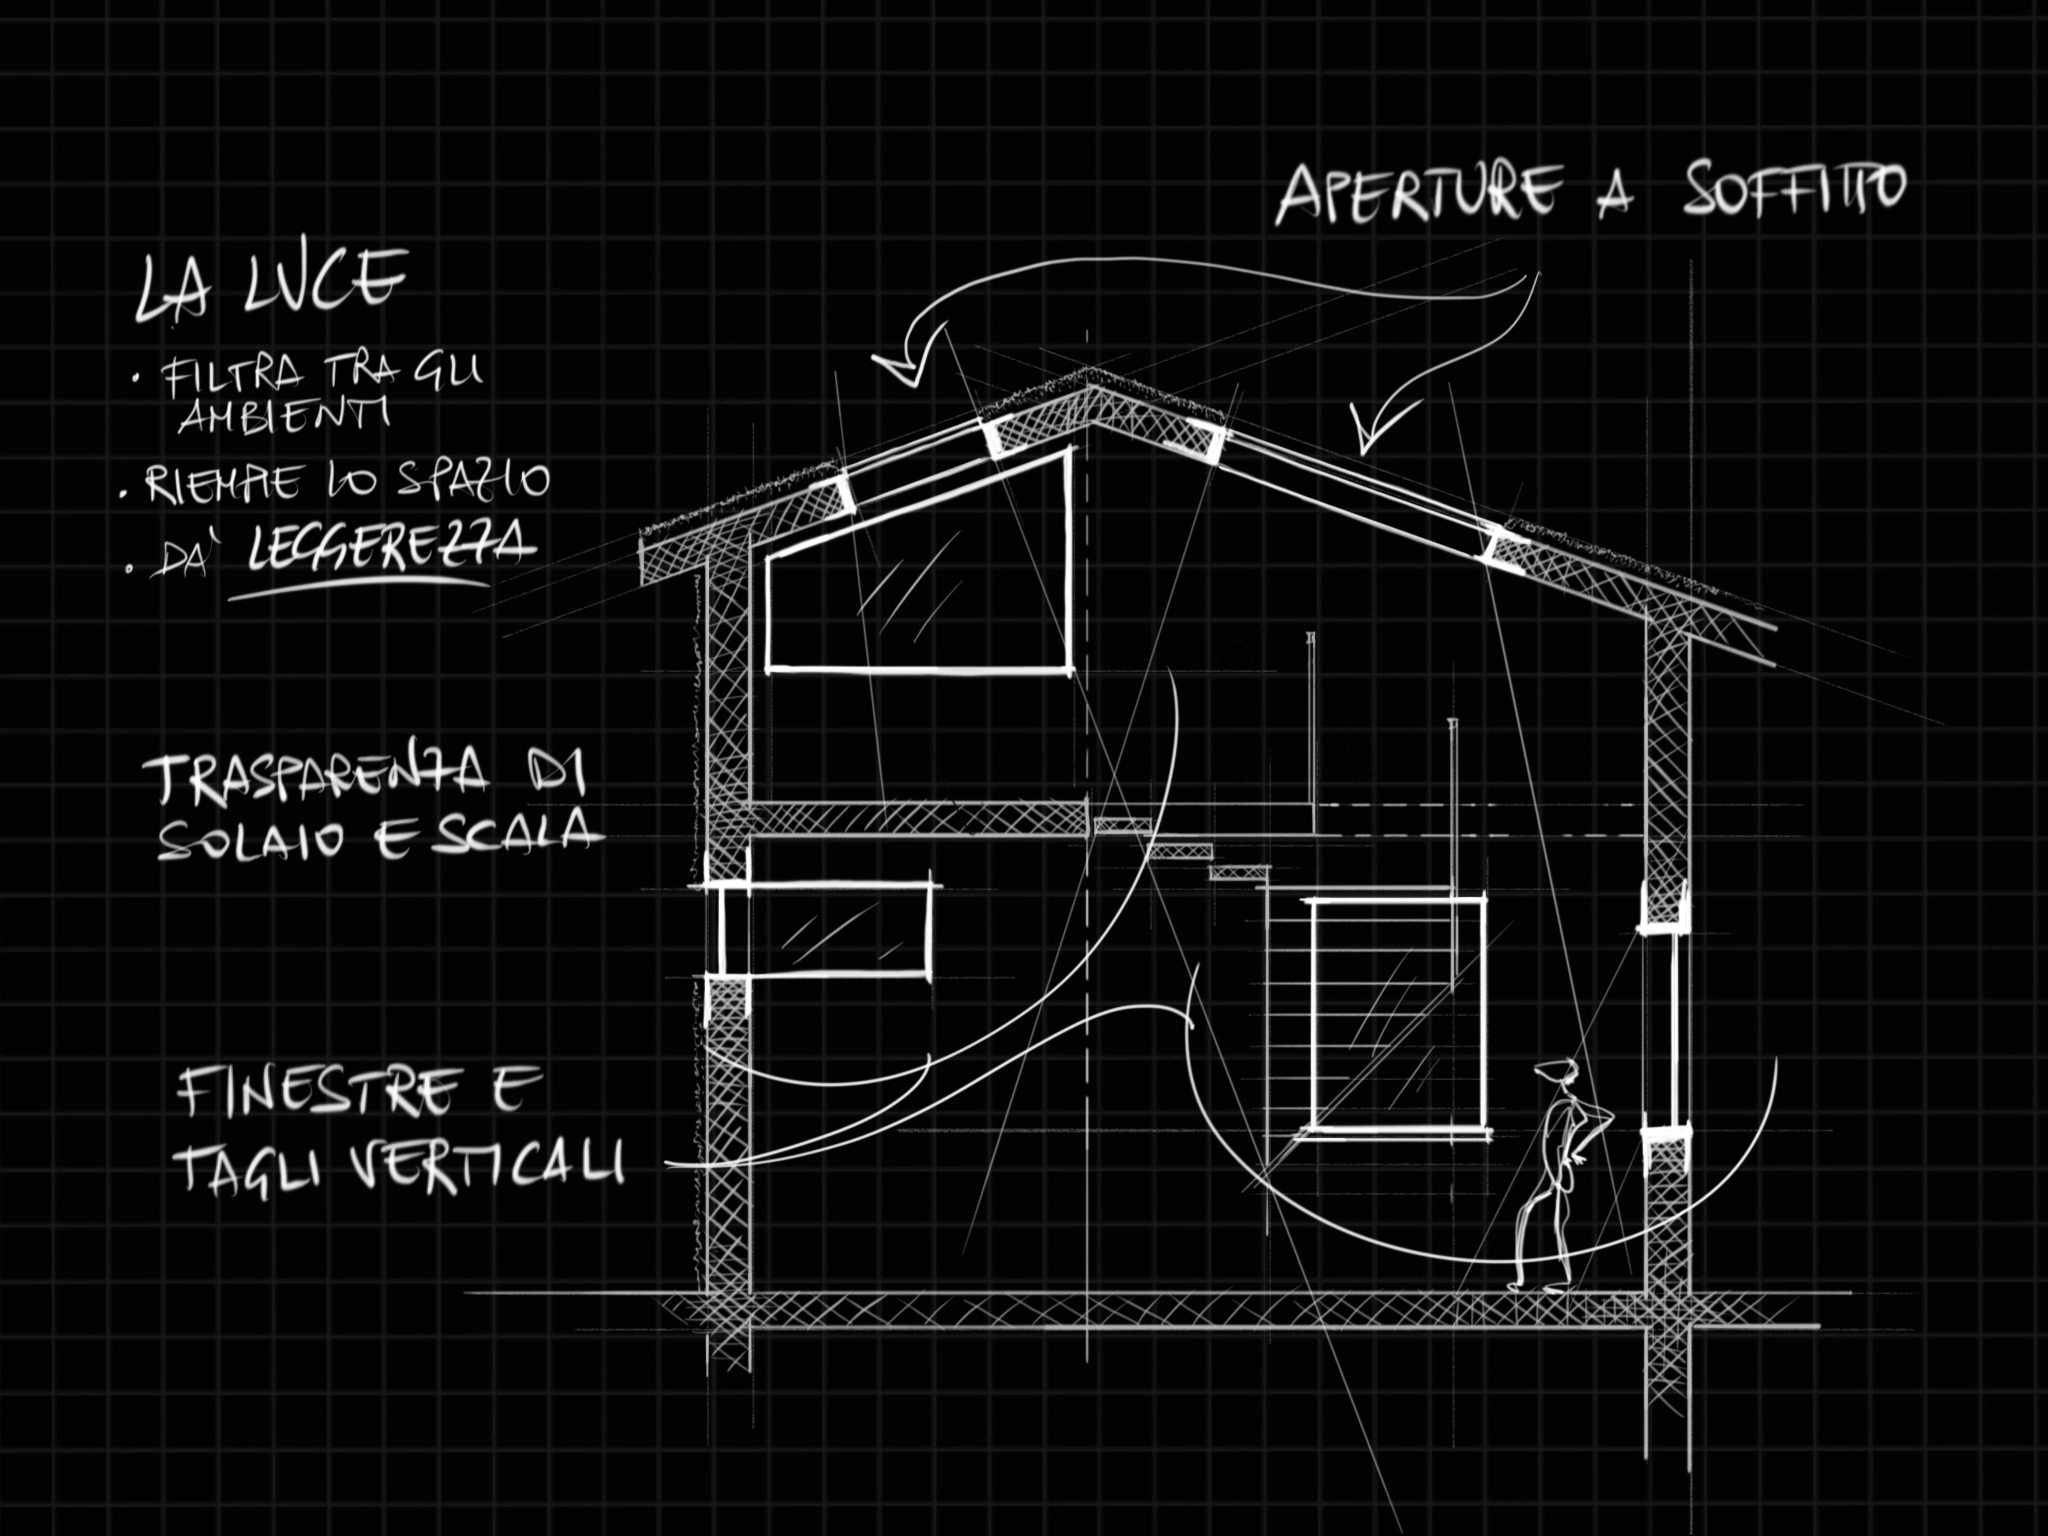 APERTURE A SOFFITTO
LA LUCE
· FILTRA TRA GLI
AMBIENTI
· RIEMPIE LO SPAZIO
· DA' LEGGEREZZA
TRASPARENZA DI
SOLAIO E SCALA
FINESTRE E
TAGLI VERTICALI